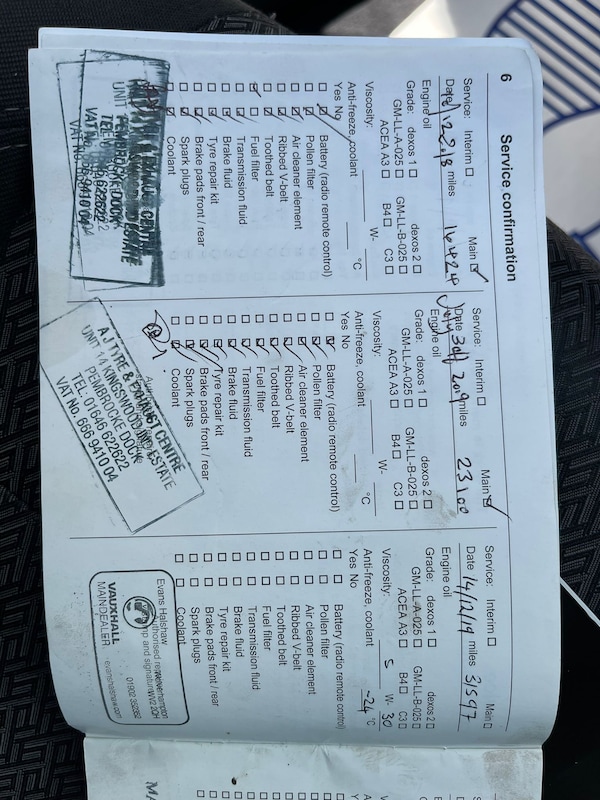 6 Service confirmation
Service: Interim □ Main ☑
miles 16424
Engine oil
Grade: dexos 1 □ dexos 2 □
GM-LL-A-025 □ GM-LL-B-025 □
ACEA A3 □ B4 □ C3 □
Viscosity: W-
Anti-freeze, coolant °C
Yes No
Battery (radio remote control)
Pollen filter
Air cleaner element
Ribbed V-belt
Toothed belt
Fuel filter
Transmission fluid
Brake fluid
Tyre repair kit
Brake pads front / rear
Spark plugs
Coolant
PEMBROKE DOCK
Service: Interim □ Main ☑
Date July 30th 2019 miles 23100
Engine oil
Grade: dexos 1 □ dexos 2 □
GM-LL-A-025 □ GM-LL-B-025 □
ACEA A3 □ B4 □ C3 □
Viscosity: W-
Anti-freeze, coolant °C
Yes No
Battery (radio remote control)
Pollen filter
Air cleaner element
Ribbed V-belt
Toothed belt
Fuel filter
Transmission fluid
Brake fluid
Tyre repair kit
Brake pads front / rear
Spark plugs
Coolant
A J TYRE & EXHAUST CENTRE
UNIT 14 KINGSWOOD IND ESTATE
PEMBROCKE DOCK
TEL. 01646 622622
VAT No. 666 9410 04
Service: Interim □ Main □
Date 14/12/19 miles 31597
Engine oil
Grade: dexos 1 □ dexos 2 □
GM-LL-A-025 □ GM-LL-B-025 □
ACEA A3 □ B4 □ C3 □
Viscosity: 5 W- 30
Anti-freeze, coolant -24 °C
Yes No
Battery (radio remote control)
Pollen filter
Air cleaner element
Ribbed V-belt
Toothed belt
Fuel filter
Transmission fluid
Brake fluid
Tyre repair kit
Brake pads front / rear
Spark plugs
Coolant
Evans Halshaw
VAUXHALL
MAIN DEALER
evanshalshaw.com